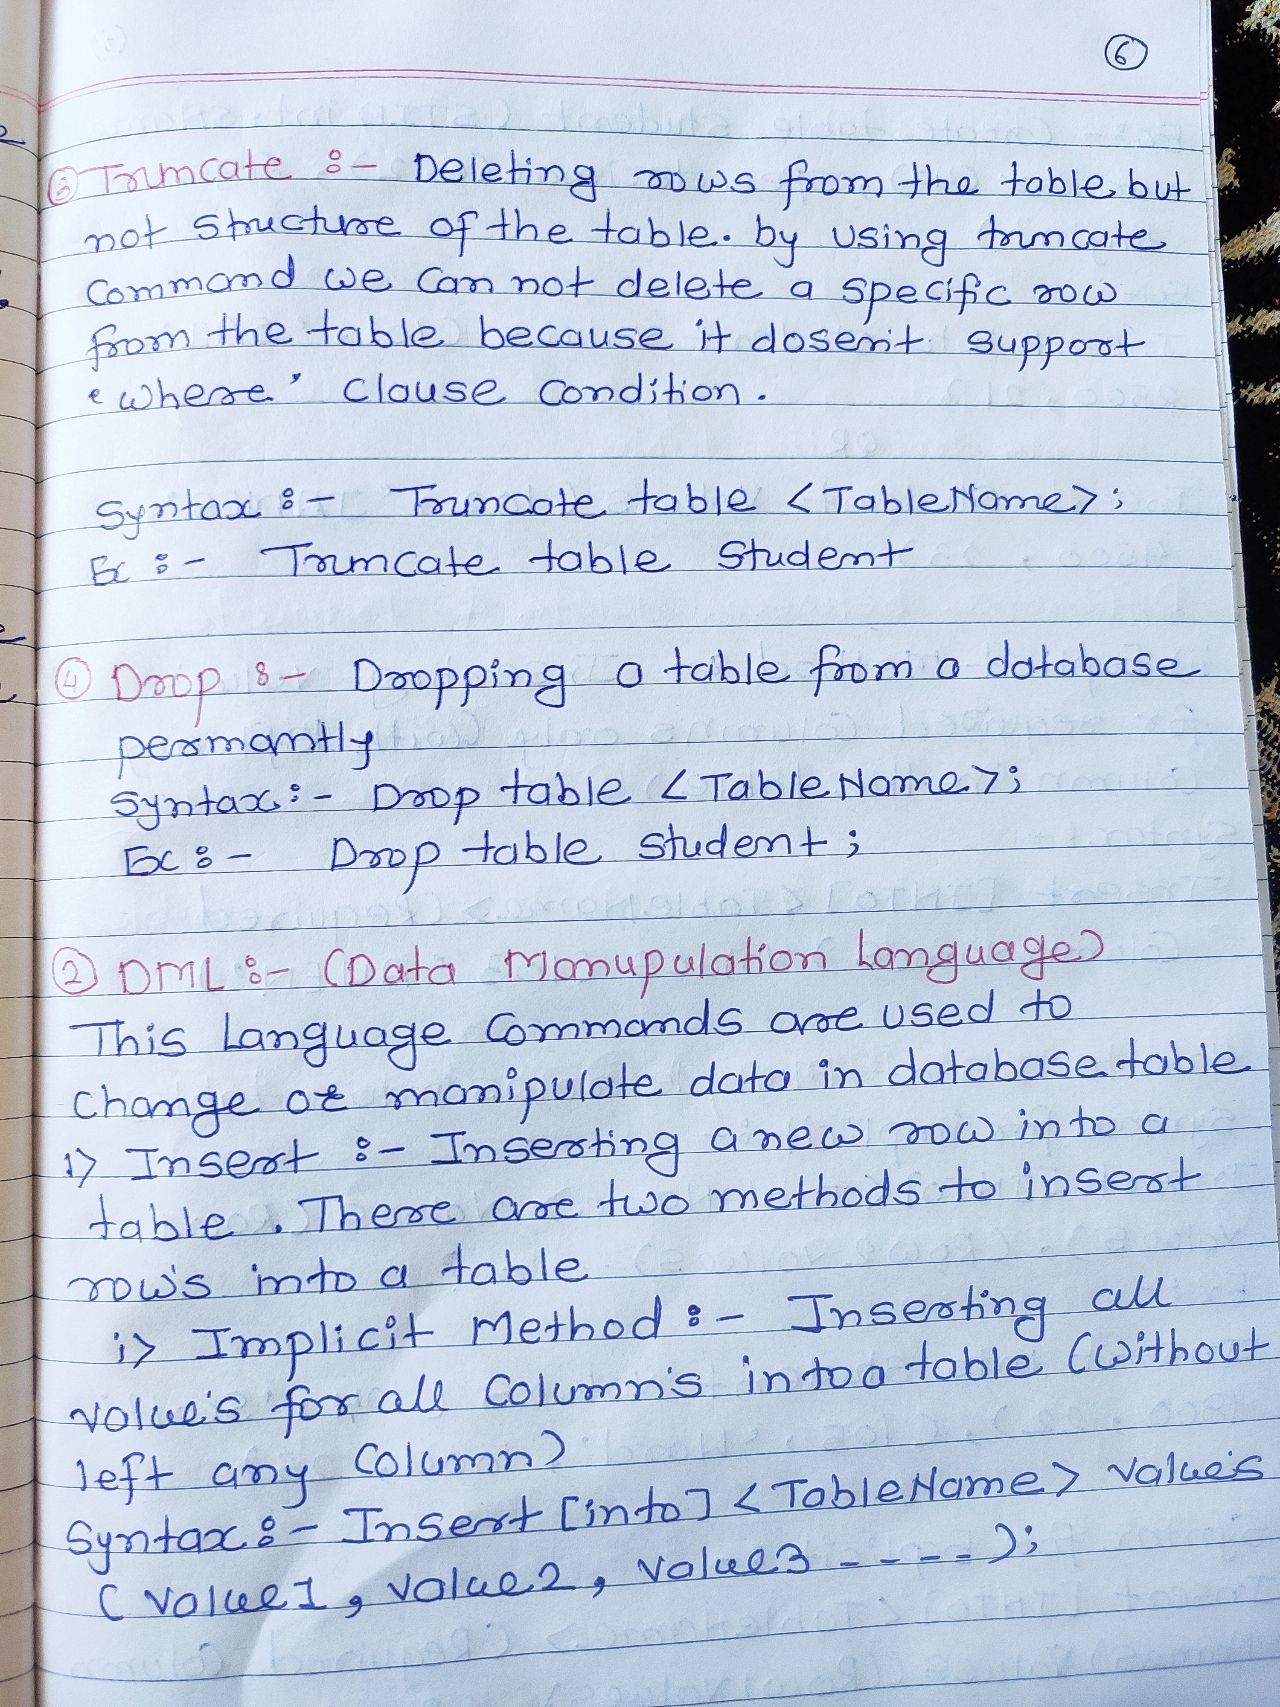 6
③ Truncate :- Deleting rows from the table but
not structure of the table. by using truncate
Command we can not delete a specific row
from the table because it dosen't support
'where' clause condition.
Syntax :- Truncate table <TableName>;
Ex :- Truncate table Student
④ Drop :- Dropping a table from a database
permantly
Syntax :- Drop table <TableName>;
Ex :- Drop table student;
② DML :- (Data Manupulation Language)
This Language Commands are used to
change or manipulate data in database table
1> Insert :- Inserting a new row into a
table. There are two methods to insert
row's into a table
i> Implicit Method :- Inserting all
value's for all column's into a table (without
left any column)
Syntax :- Insert [into] <TableName> value's
(value1, value2, value3 - - - -);